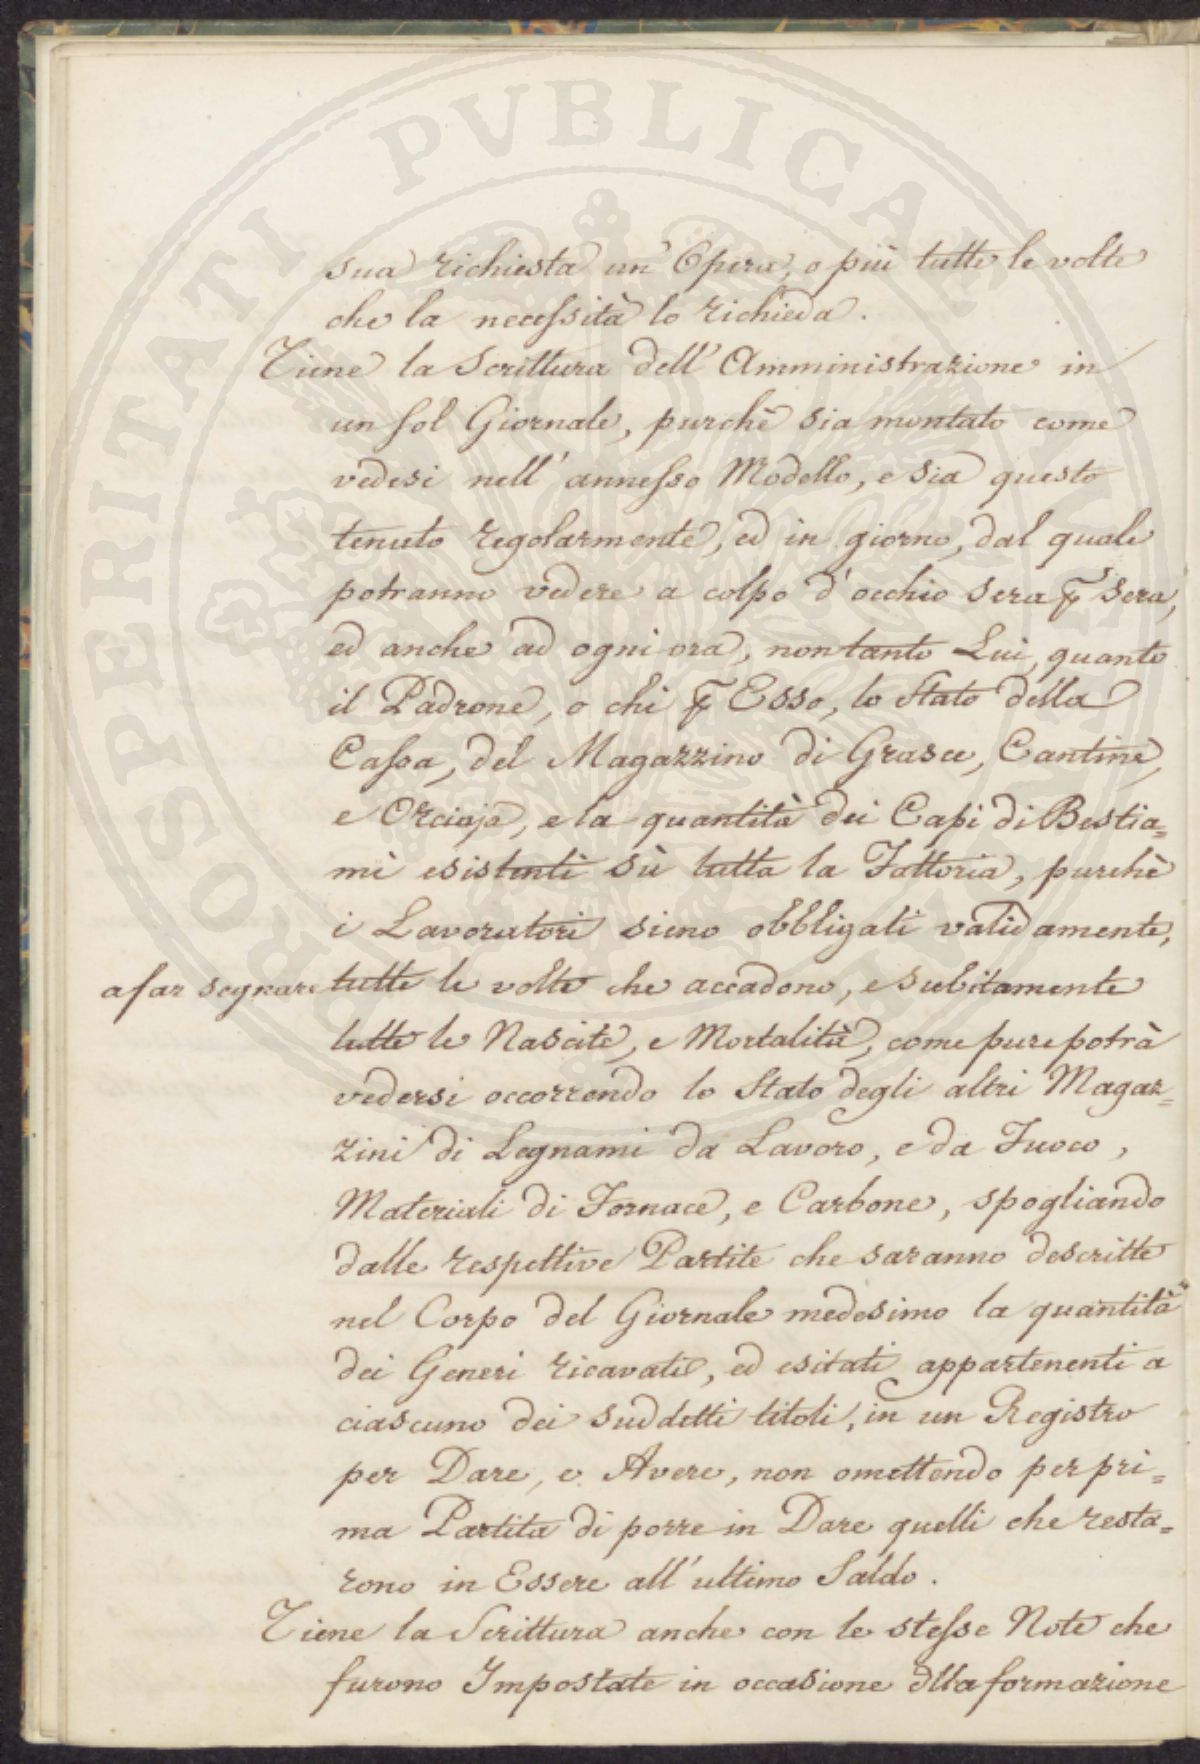 PROSPERITATI PVBLICAE AVGENDAE
sua richiesta un' Opera, o più tutte le volte
che la necessità lo richieda.
Tiene la Scrittura dell' Amministrazione in
un sol Giornale, purchè sia montato come
vedesi nell' annesso Modello, e sia questo
tenuto regolarmente, ed in giorno, dal quale
potranno vedere a colpo d' occhio sera p sera,
ed anche ad ogni ora, non tanto Lui, quanto
il Padrone, o chi p Esso, lo Stato della
Cassa, del Magazzino di Grasce, Cantine,
e Orciaja, e la quantità dei Capi di Bestia=
mi esistenti sù tutta la Fattoria, purchè
i Lavoratori sieno obbligati validamente,
a far segnare tutte le volte che accadono, e subitamente
tutte le Nascite, e Mortalità, come pure potrà
vedersi occorrendo lo Stato degli altri Magaz=
zini di Legnami da Lavoro, e da Fuoco,
Materiali di Fornace, e Carbone, spogliando
dalle respettive Partite che saranno descritte
nel Corpo del Giornale medesimo la quantità
dei Generi ricavati, ed esitati appartenenti a
ciascuno dei suddetti titoli, in un Registro
per Dare, e Avere, non omettendo per pri=
ma Partita di porre in Dare quelli che resta=
rono in Essere all' ultimo Saldo.
Tiene la Scrittura anche con le stesse Note che
furono Impostate in occasione dlla formazione